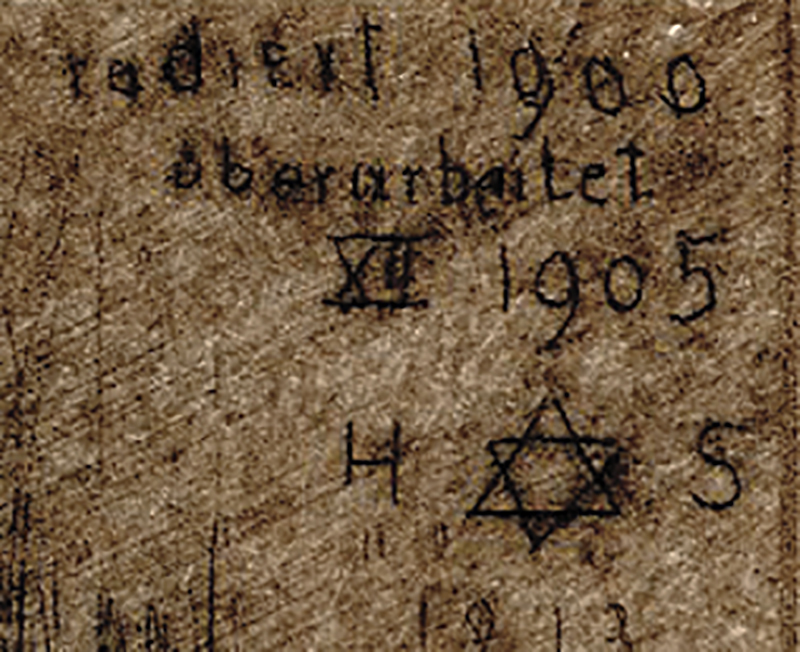 radiert 1900
überarbeitet
XII 1905
H ✡ S
1913